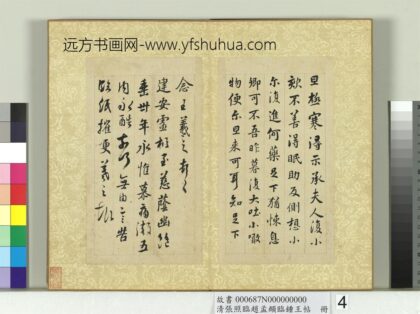 远方书画网-www.yfshuhua.com
旦極寒得示承夫人復小
欬不善得眠助反側想小
尔復進何藥念足下猶悚息
卿可不吾昨暮復大吐小噉
物便尔旦来可耳知足下
念王羲之頓首
建安靈柩至慈蔭幽絕
垂卅年永惟慕痛徹五
内永酷奈何無由言告
臨紙摧哽羲之頓首
故書 000687N000000000
清張照臨趙孟頫臨鍾王帖 冊
4